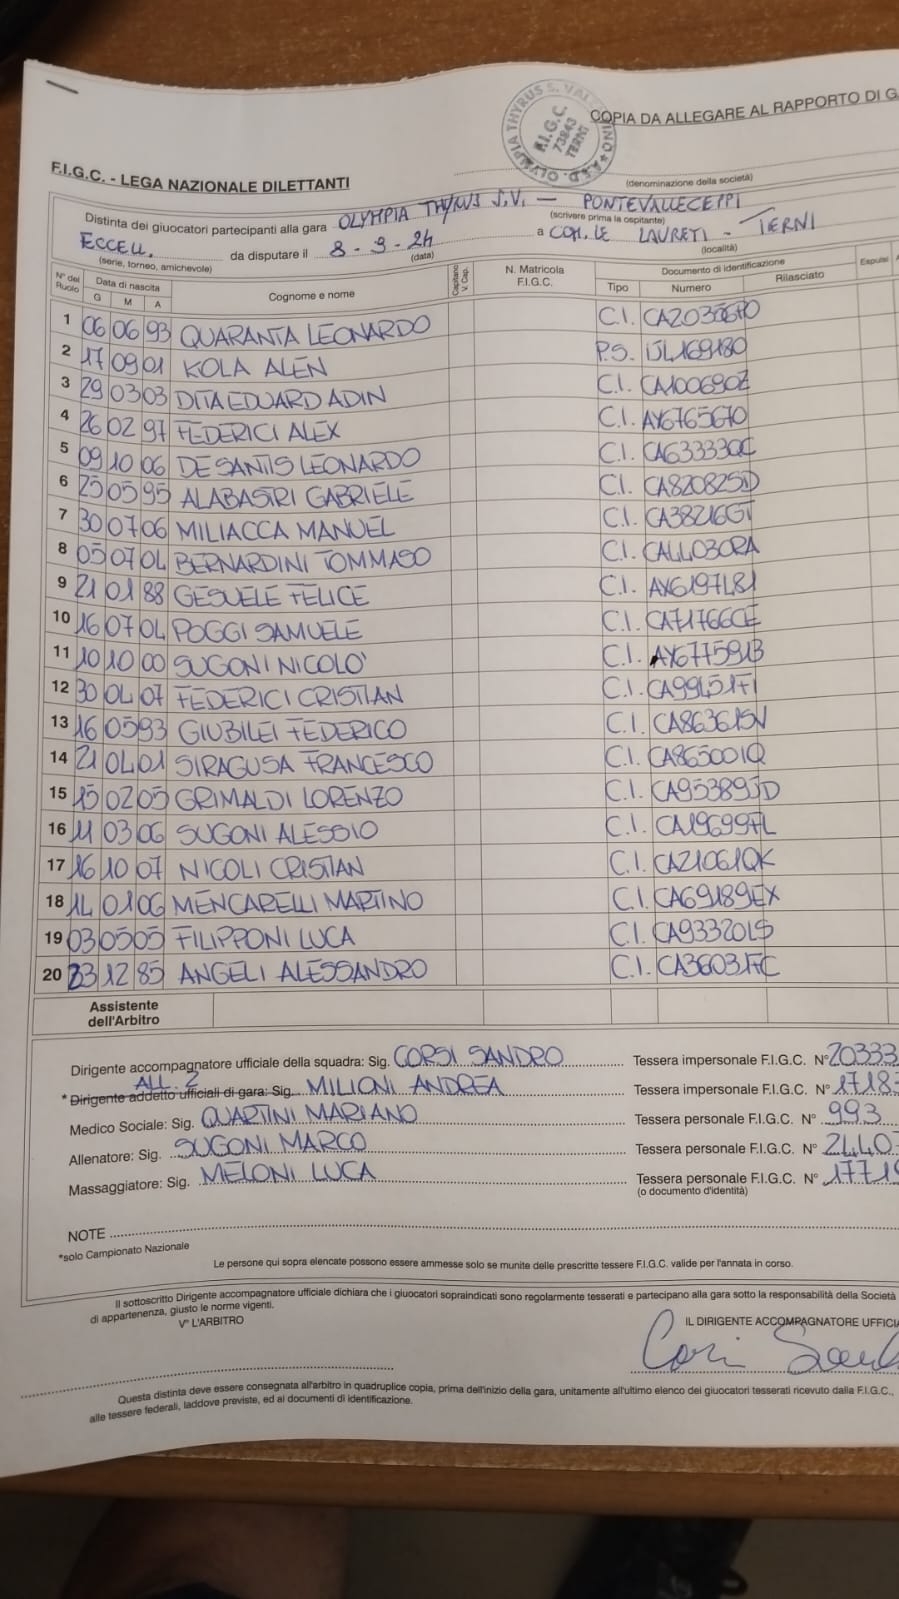 OLYMPIA THYRUS S. VALENTINO A.S.D.
F.I.G.C.
73843
TERNI
COPIA DA ALLEGARE AL RAPPORTO DI G
F.I.G.C. - LEGA NAZIONALE DILETTANTI
(denominazione della società)
Distinta dei giuocatori partecipanti alla gara OLYMPIA THYRUS S.V. - PONTEVALLECEPPI
(scrivere prima la ospitante)
ECCELL. da disputare il 8-9-24 a COM.LE LAURETI - TERNI
(serie, torneo, amichevole) (data) (località)
N° del Ruolo Data di nascita G M A Cognome e nome Capitano V. Cap. N. Matricola F.I.G.C. Documento di identificazione Tipo Numero Rilasciato Espulsi
1 06 06 93 QUARANTA LEONARDO C.I.
2 17 09 01 KOLA ALEN P.S.
3 29 03 03 DITA EDUARD ADIN C.I. CA10069OZ
4 26 02 97 FEDERICI ALEX C.I. AX6765670
5 09 10 06 DE SANTIS LEONARDO C.I. CA63333QC
6 25 05 95 ALABASTRI GABRIELE C.I. CA82082SD
7 30 07 06 MILIACCA MANUEL C.I. CA38216GT
8 05 07 04 BERNARDINI TOMMASO C.I. CA44030RA
9 21 01 88 GESUELE FELICE C.I. AX6197481
10 16 07 04 POGGI SAMUELE C.I. CA71766CE
11 10 10 00 SUGONI NICOLO' C.I. AX6775913
12 30 04 07 FEDERICI CRISTIAN C.I. CA99451FI
13 16 05 93 GIUBILEI FEDERICO C.I. CA86361SN
14 21 04 01 SIRAGUSA FRANCESCO C.I. CA86500IQ
15 15 02 05 GRIMALDI LORENZO C.I. CA95389JD
16 11 03 06 SUGONI ALESSIO C.I. CA19699FL
17 16 10 07 NICOLI CRISTIAN C.I. CA21061QK
18 14 01 06 MENCARELLI MARTINO C.I. CA69189EX
19 03 05 05 FILIPPONI LUCA C.I. CA93320LS
20 23 12 85 ANGELI ALESSANDRO C.I. CA36031FC
Assistente dell'Arbitro
Dirigente accompagnatore ufficiale della squadra: Sig. CORSI SANDRO Tessera impersonale F.I.G.C. N° 20333
ALL. 2
* Dirigente addetto ufficiali di gara: Sig. MILIONI ANDREA Tessera impersonale F.I.G.C. N° 1718
Medico Sociale: Sig. QUARTINI MARIANO Tessera personale F.I.G.C. N° 993
Allenatore: Sig. SUGONI MARCO Tessera personale F.I.G.C. N° 2440
Massaggiatore: Sig. MELONI LUCA Tessera personale F.I.G.C. N° 17719
(o documento d'identità)
NOTE
*solo Campionato Nazionale
Le persone qui sopra elencate possono essere ammesse solo se munite delle prescritte tessere F.I.G.C. valide per l'annata in corso.
Il sottoscritto Dirigente accompagnatore ufficiale dichiara che i giuocatori sopraindicati sono regolarmente tesserati e partecipano alla gara sotto la responsabilità della Società
di appartenenza, giusto le norme vigenti.
V° L'ARBITRO IL DIRIGENTE ACCOMPAGNATORE UFFICI
Questa distinta deve essere consegnata all'arbitro in quadruplice copia, prima dell'inizio della gara, unitamente all'ultimo elenco dei giuocatori tesserati ricevuto dalla F.I.G.C.,
alle tessere federali, laddove previste, ed ai documenti di identificazione.